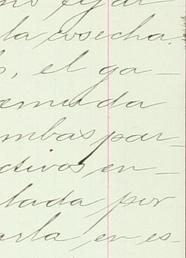 no fijar
la cosecha.
o, el ga-
emuda
mbas par-
ctivos en-
lada por
arla, en es-